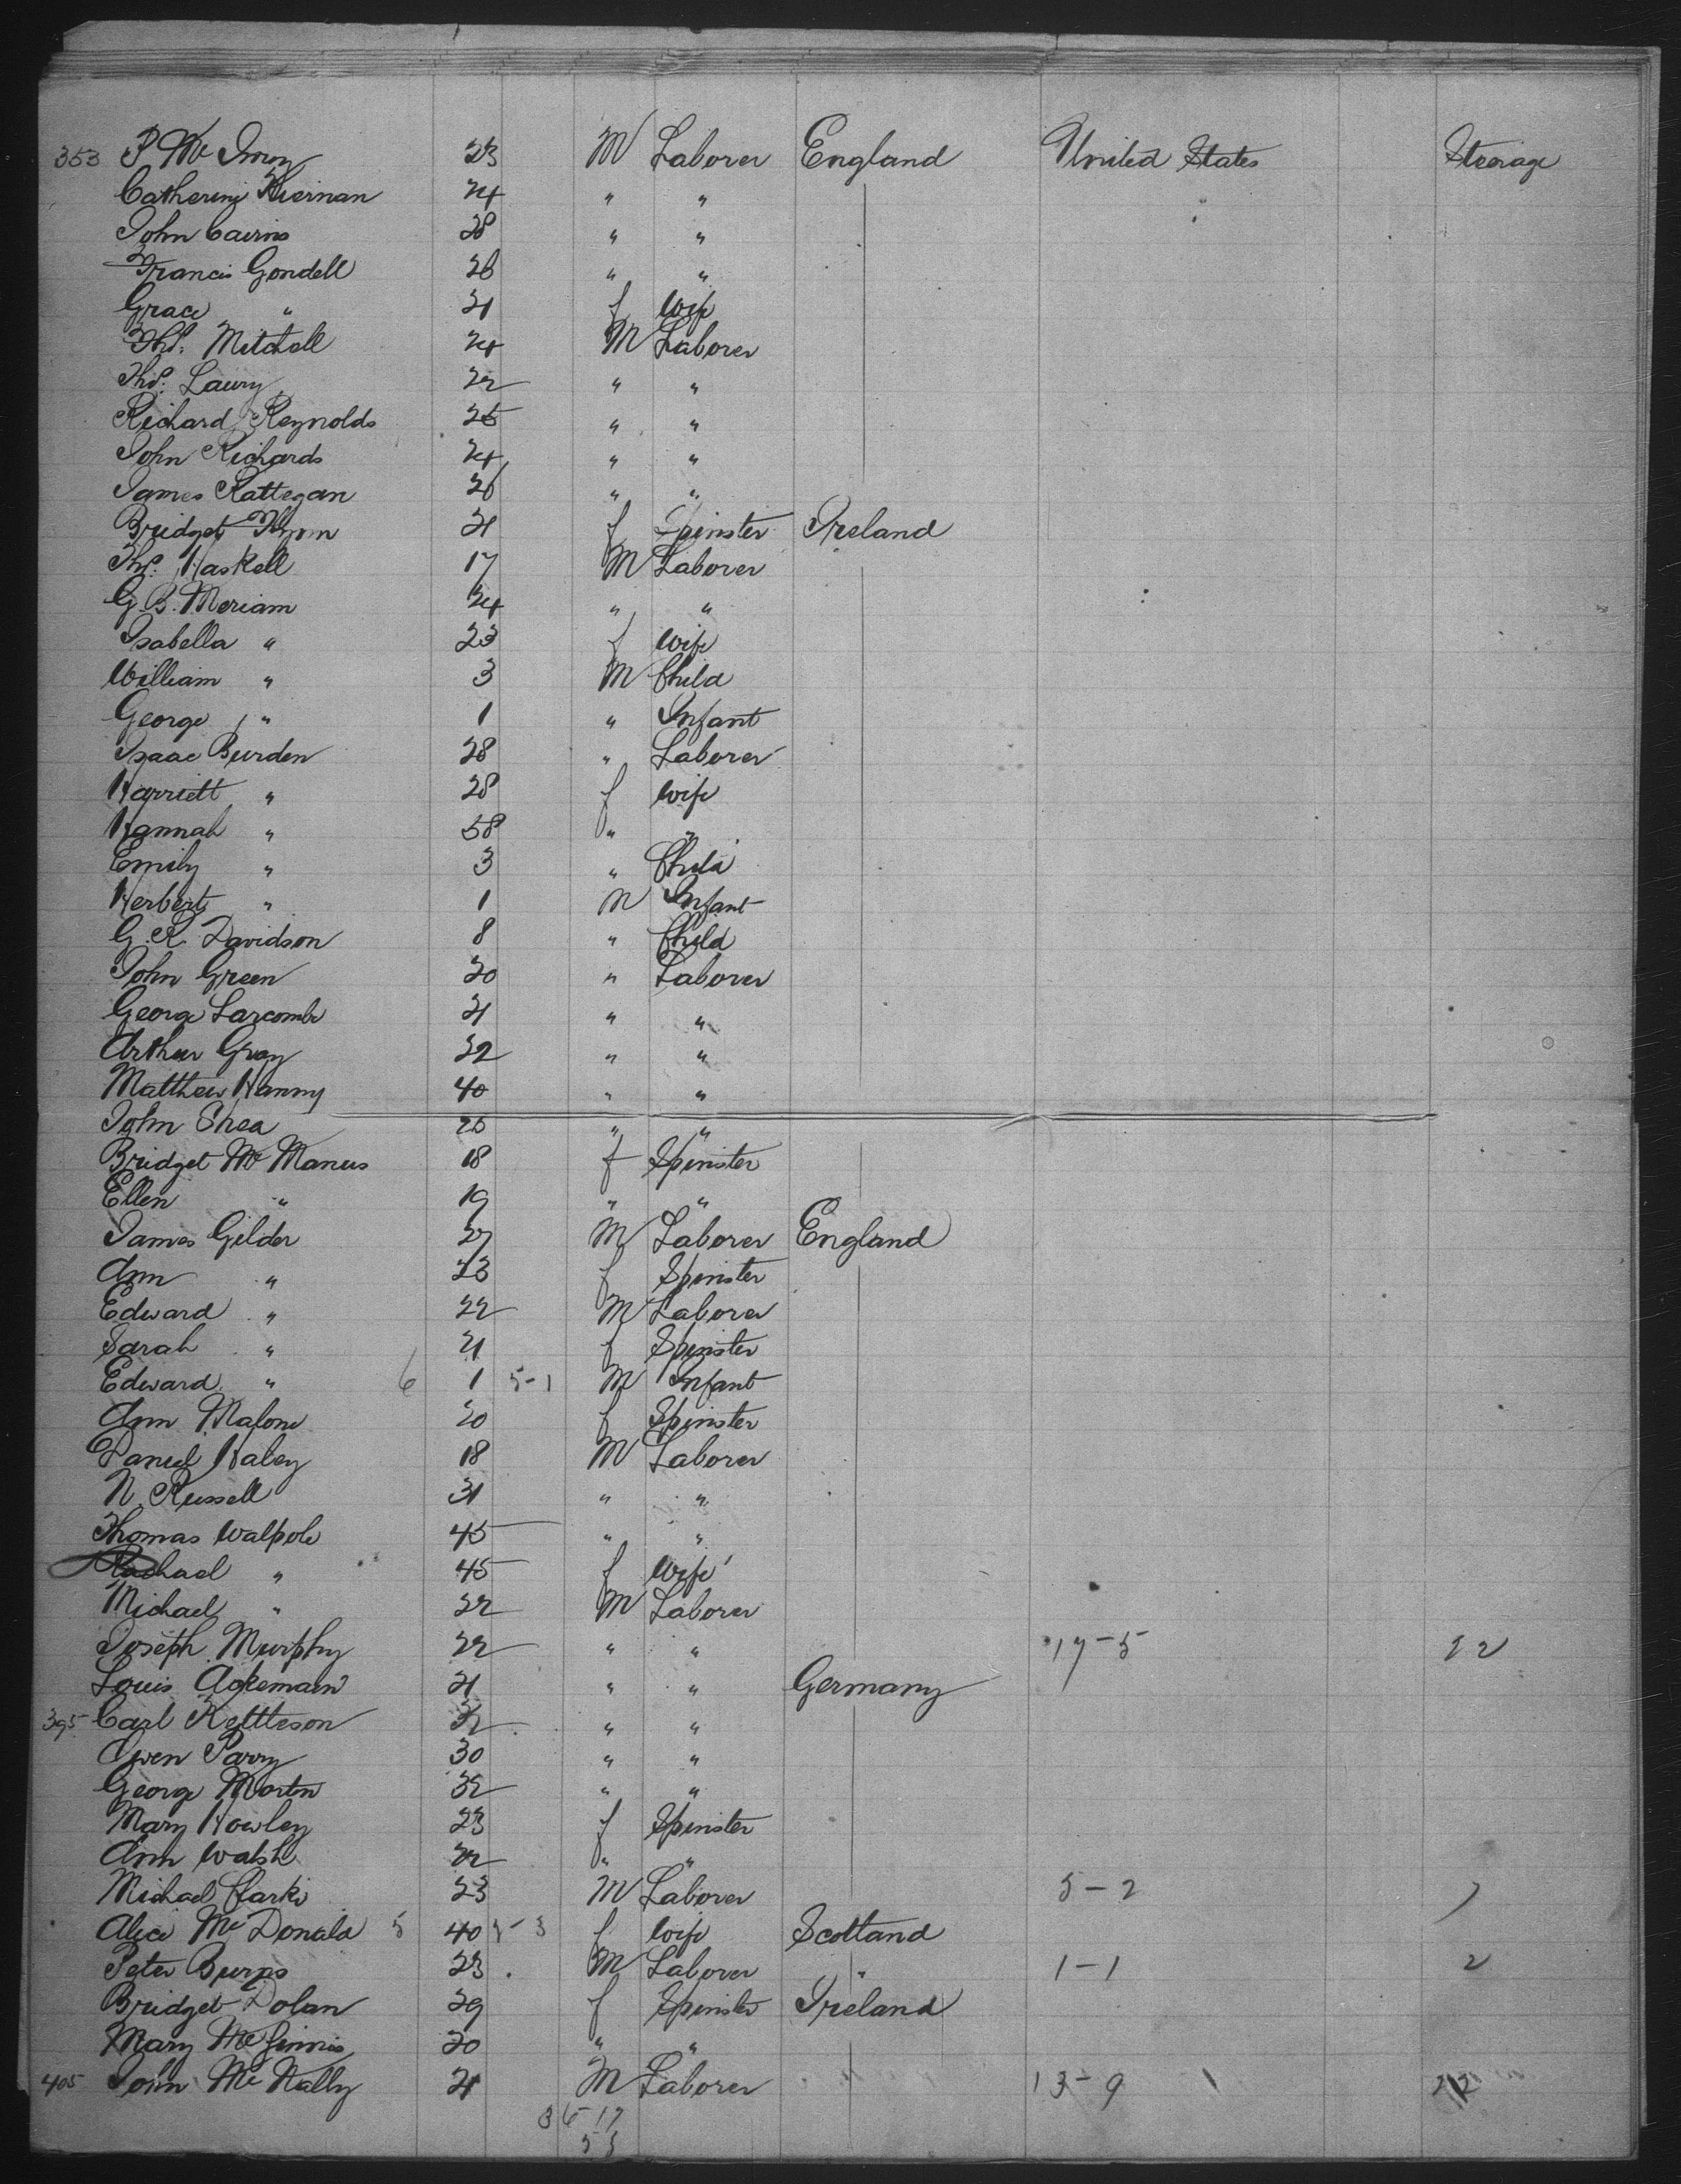 353 P Mc 23 M Laborer England United States Steerage
Catherine Kiernan 24 " "
John Cairns 28 " "
Francis Gondell 26 " "
Grace " 21 f Wife
Thos. Mitchell 24 M Laborer
Thos. Laury 22 " "
Richard Reynolds 25 " "
John Richards 24 " "
James Rattegan 26 " "
Bridget 21 f Spinster Ireland
Thos. Haskell 17 M Laborer
G. B. Meriam 24 " "
Isabella " 23 f Wife
William " 3 M Child
George " 1 " Infant
Isaac Burden 28 " Laborer
Harriett " 28 f Wife
Hannah " 58 " "
Emily " 3 " Child
Herbert " 1 M Infant
G. R. Davidson 8 " Child
John Green 20 " Laborer
George Larcombe 21 " "
Arthur Gray 32 " "
Matthew Hanny 40 " "
John Shea 25 " "
Bridget Mc Manus 18 f Spinster
Ellen " 19 " "
James Gilder 27 M Laborer England
Ann " 23 f Spinster
Edward " 22 M Laborer
Sarah " 21 f Spinster
Edward " 6 1 5-1 M Infant
Ann Malone 20 f Spinster
Daniel Haley 18 M Laborer
N. Russell 31 " "
Thomas Walpole 45 " "
Rachael " 45 f Wife
Michael " 22 M Laborer
Joseph Murphy 22 " " 17-5 22
Louis Ackemann 21 " " Germany
395 Carl Kettleson 32 " "
Owen Parry 30 " "
George Morton 32 " "
Mary Howley 23 f Spinster
Ann Walsh 22 " "
Michael Clarke 23 M Laborer 5-2 7
Alice Mc Donald 5 40 5-3 f Wife Scotland
Peter Burns 23 M Laborer " 1-1 2
Bridget Dolan 29 f Spinster Ireland
Mary McGinnis 20 " "
405 John Mc Nally 21 M Laborer 13-9 22
36-17
53